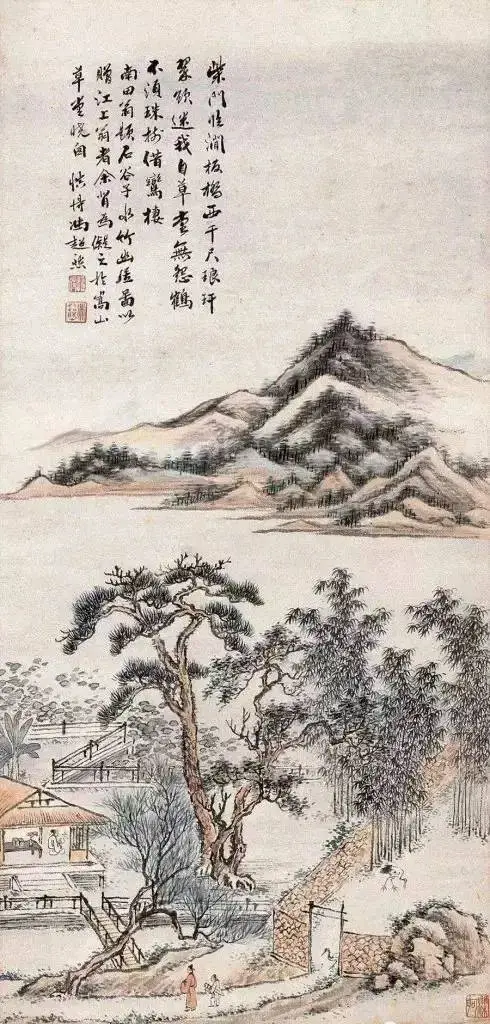 柴門臨澗板橋西千尺琅玕
翠欲迷我自草堂無怨鶴
不須珠樹借鸞棲
南田翁題石谷子水竹幽居圖以
贈江上翁者余背為擬之於嵩山
草堂 慎得馮超然